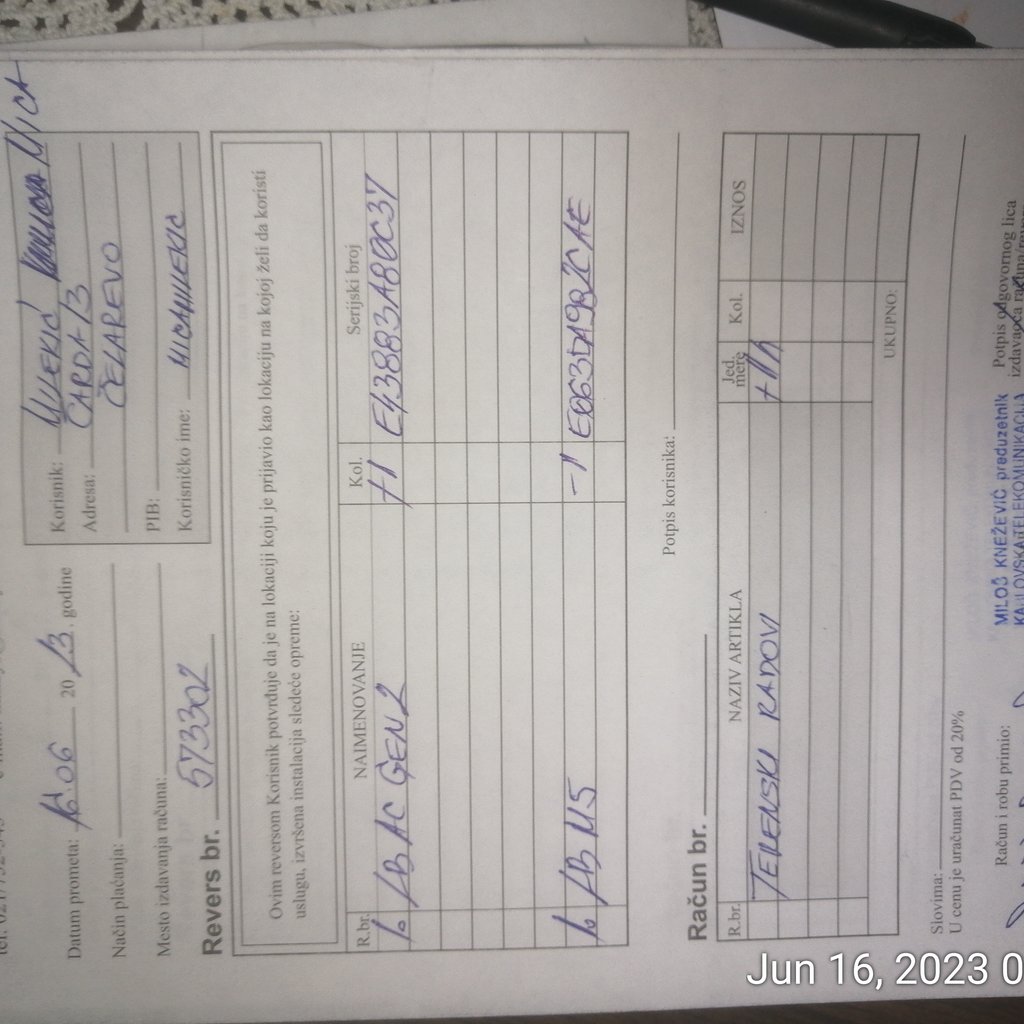 Datum prometa: 16.06 2023. godine
Način plaćanja:
Mesto izdavanja računa:
Revers br. 573302
Korisnik: MIJEKIĆ MICA
Adresa: ČARDA 13
ČELAREVO
PIB:
Korisničko ime: MICAMIJEKIC
Ovim reversom Korisnik potvrđuje da je na lokaciji koju je prijavio kao lokaciju na kojoj želi da koristi
uslugu, izvršena instalacija sledeće opreme:
R.br. NAIMENOVANJE Kol. Serijski broj
1. LB AC GEN2 +1 E43883A80C37
1. LB M5 -1 E063DA982CAE
Potpis korisnika:
Račun br.
R.br. NAZIV ARTIKLA Jed. mere Kol. IZNOS
TERENSKI RADOVI +1h
UKUPNO:
Slovima:
U cenu je uračunat PDV od 20%
Račun i robu primio:
MILOŠ KNEŽEVIĆ preduzetnik
Potpis odgovornog lica
izdavaoca računa
Jun 16, 2023